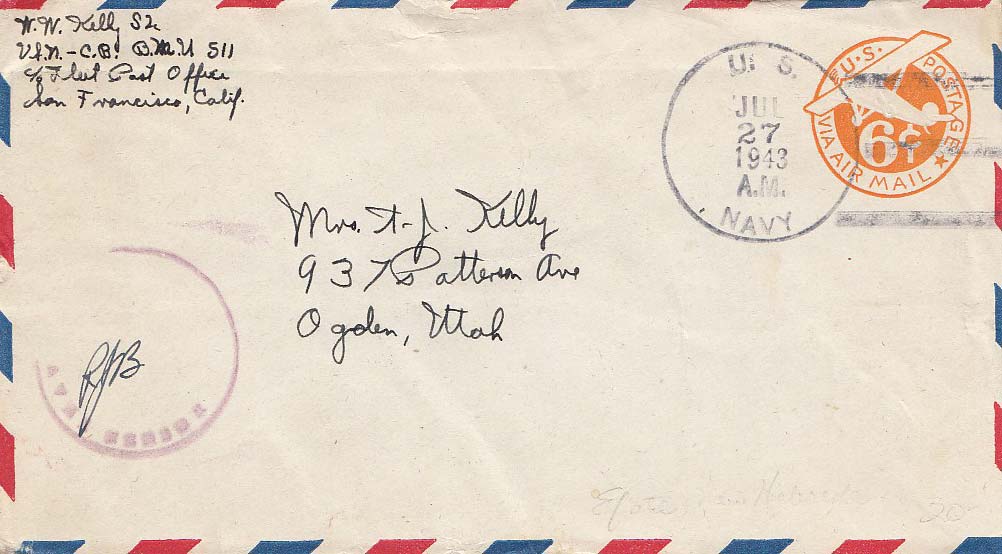 W. W. Kelly S2c
U.S.N.-C.B. B.M.U 511
c/o Fleet Post Office
San Francisco, Calif.
U. S.
JUL
27
1943
A.M.
NAVY
U.S. POSTAGE
6¢
VIA AIR MAIL
Mrs. A. J. Kelly
937 Patterson Ave
Ogden, Utah
RJB
NAVY
20